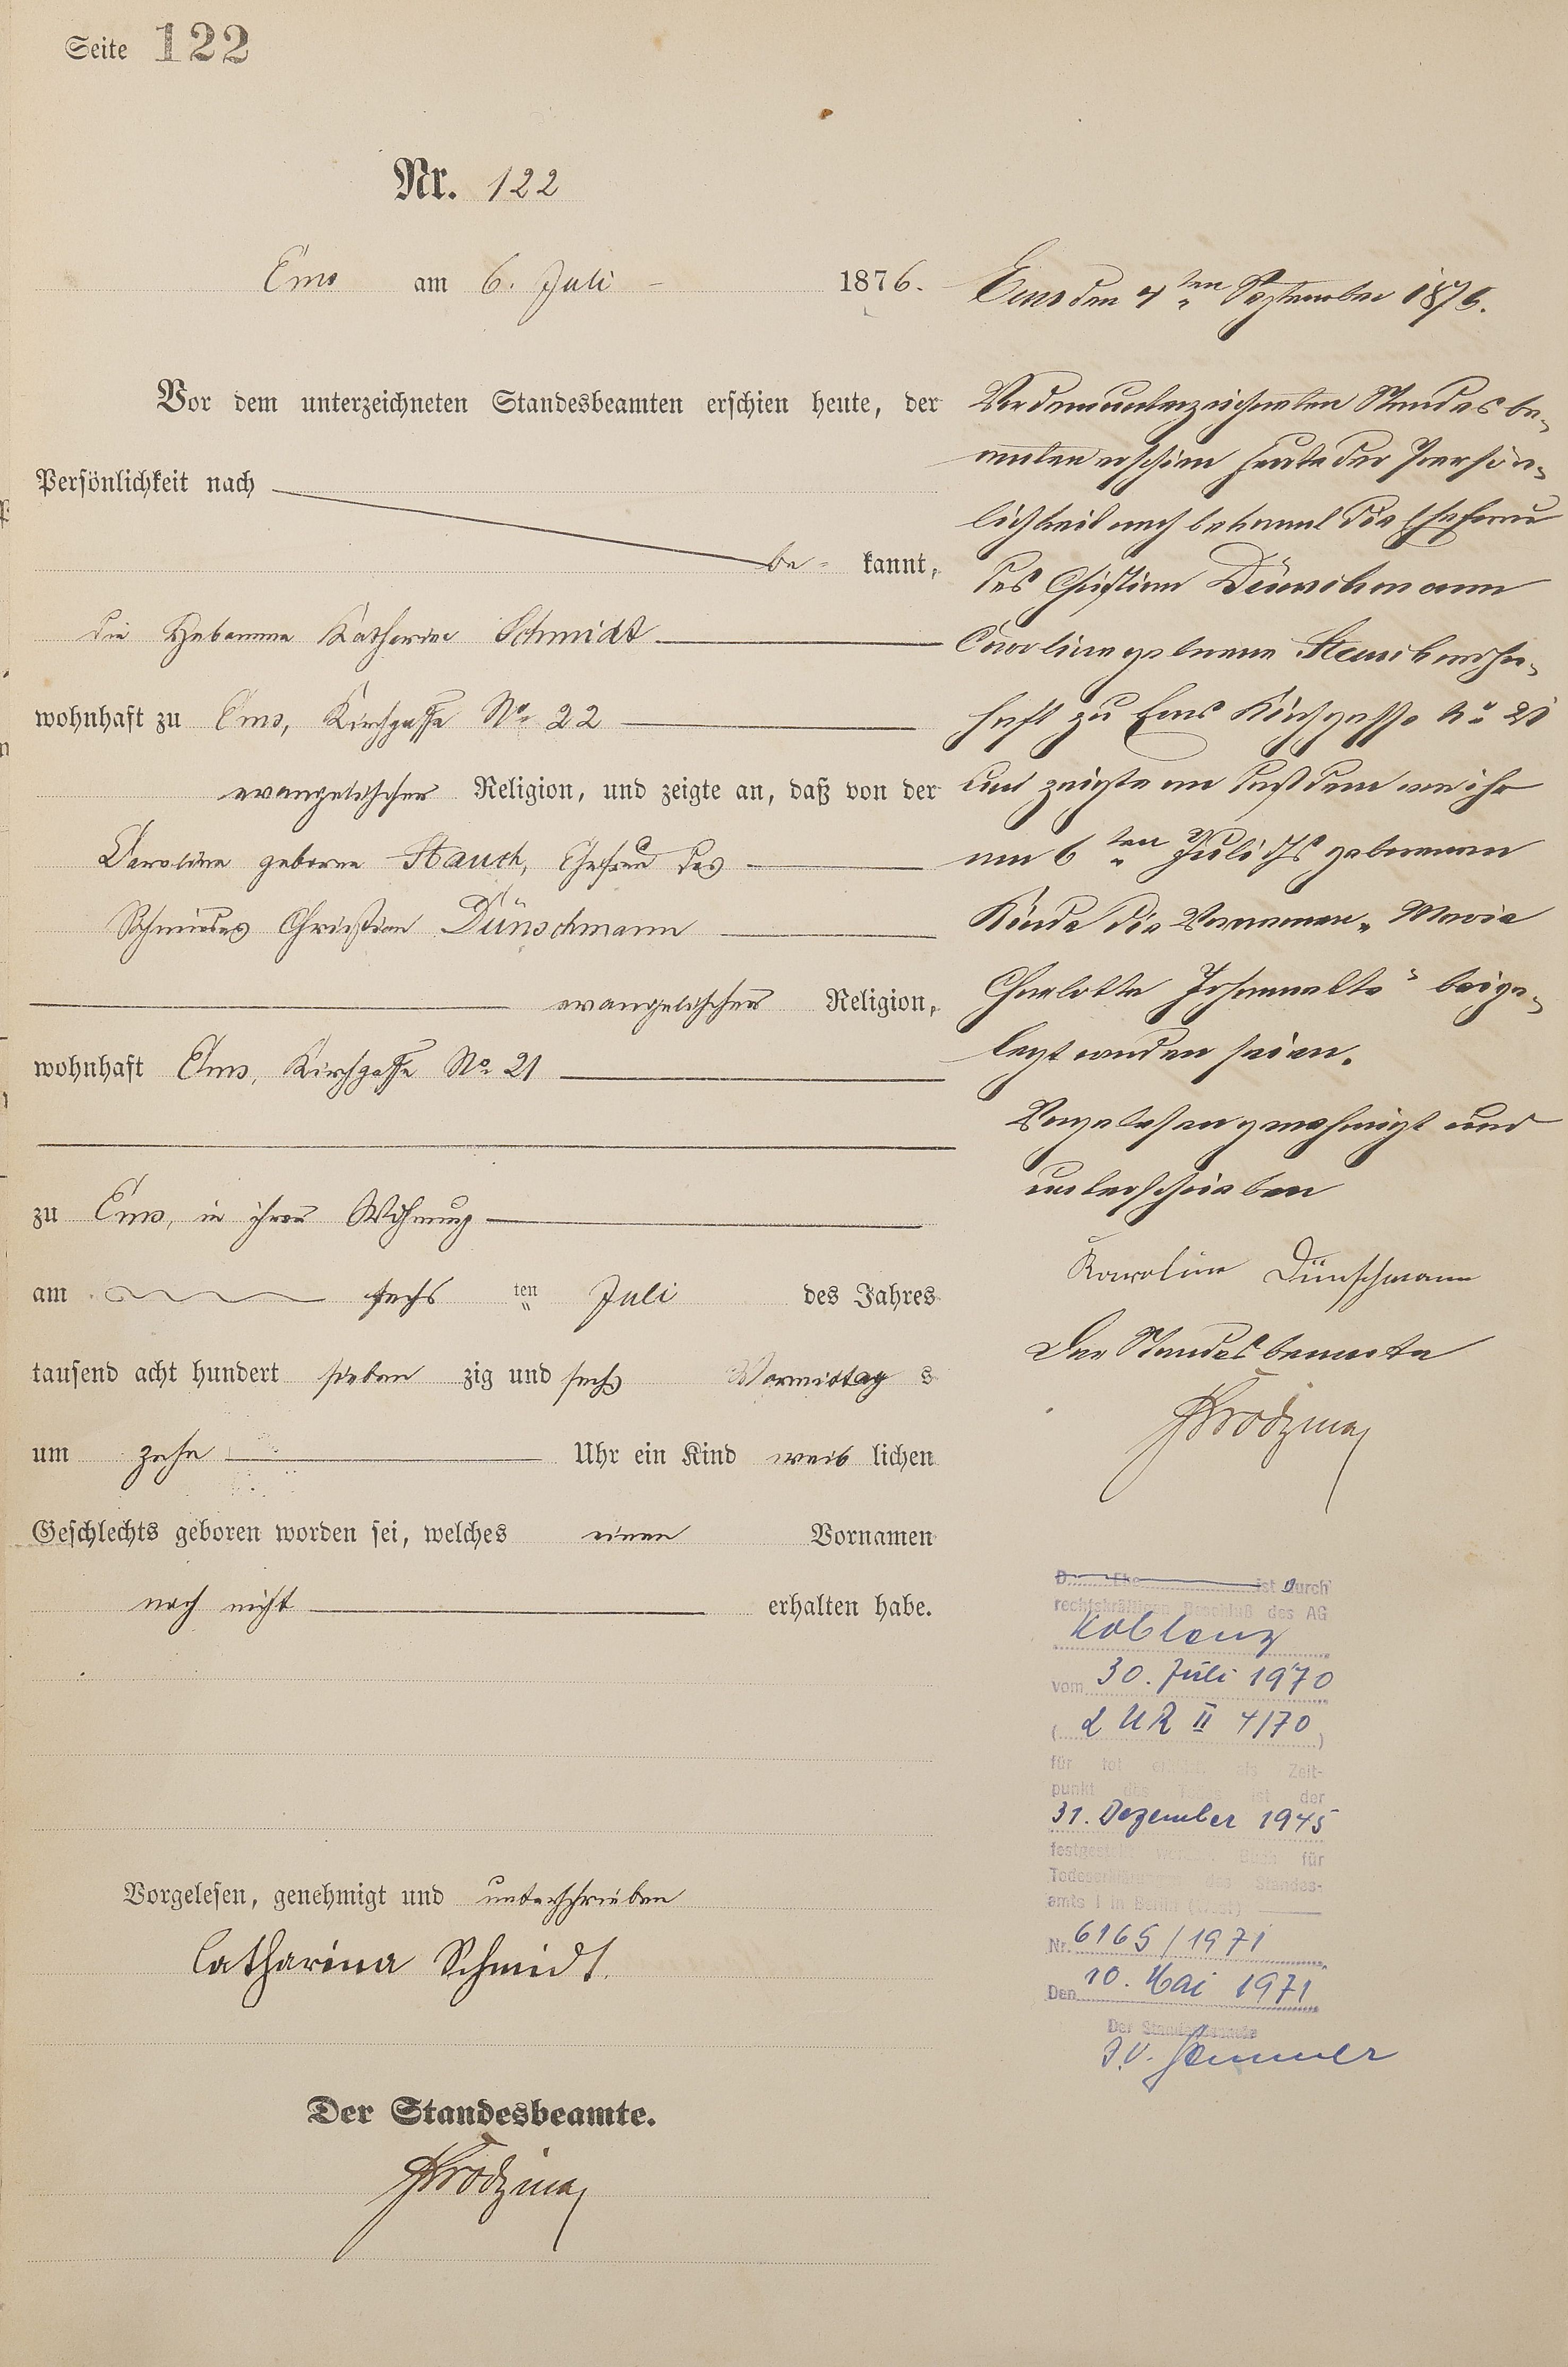 Seite 122
Nr. 122
Ems am 6. Juli 1876.
Vor dem unterzeichneten Standesbeamten erschien heute, der
Persönlichkeit nach
be- kannt,
die Hebamme Katharine Schmidt
wohnhaft zu Ems, Kirchgasse No. 22
evangelischer Religion, und zeigte an, daß von der
Caroline geborne Stauch, Ehefrau des
Schmiedes Christian Dünschmann
evangelischer Religion,
wohnhaft Ems, Kirchgasse No. 21
zu Ems, in ihrer Wohnung
am sechs ten Juli des Jahres
tausend acht hundert sieben zig und sechs Vormittag s
um zehn Uhr ein Kind weib lichen
Geschlechts geboren worden sei, welches einen Vornamen
noch nicht erhalten habe.
Vorgelesen, genehmigt und unterschrieben
Catharina Schmidt.
Der Standesbeamte.
Ems den 4ten September 1876.
Vor dem unterzeichneten Standesbe-
amten erschien heute der Persön-
lichkeit nach bekannt die Ehefrau
des Christian Dünschmann
Caroline geborene Stauch wohn-
haft zu Ems Kirchgasse No 21
und zeigte an daß dem von ihr
am 6ten Juli dJs geborenen
Kinde die Vornamen „Maria
Charlotte Johannette" beige-
legt worden seien.
Vorgelesen genehmigt und
unterschrieben
Karoline Dünschmann
Der Standesbeamte
D Ehe ist durch
rechtskräftigen Beschluß des AG
Koblenz
vom 30. Juli 1970
( 2 UR II 4/70 )
für tot erklärt, als Zeit-
punkt des Todes ist der
31. Dezember 1945
festgestellt worden. Buch für
Todeserklärungen des Standes-
amts I in Berlin (West)
Nr. 6165/1971
Den 10. Mai 1971
Der Standesbeamte
I.V.